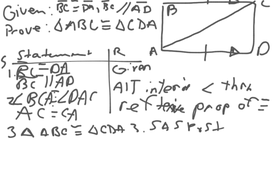 Given: BC ≅ DA, BC // AD
Prove: △ABC ≅ △CDA
B
C
A
D
S Statement R
1. BC ≅ DA Given
BC // AD
2 ∠BCA ≅ ∠DAC Alt interior < thm
AC ≅ CA reflexive prop of ≅
3 △ABC ≅ △CDA 3. SAS Post